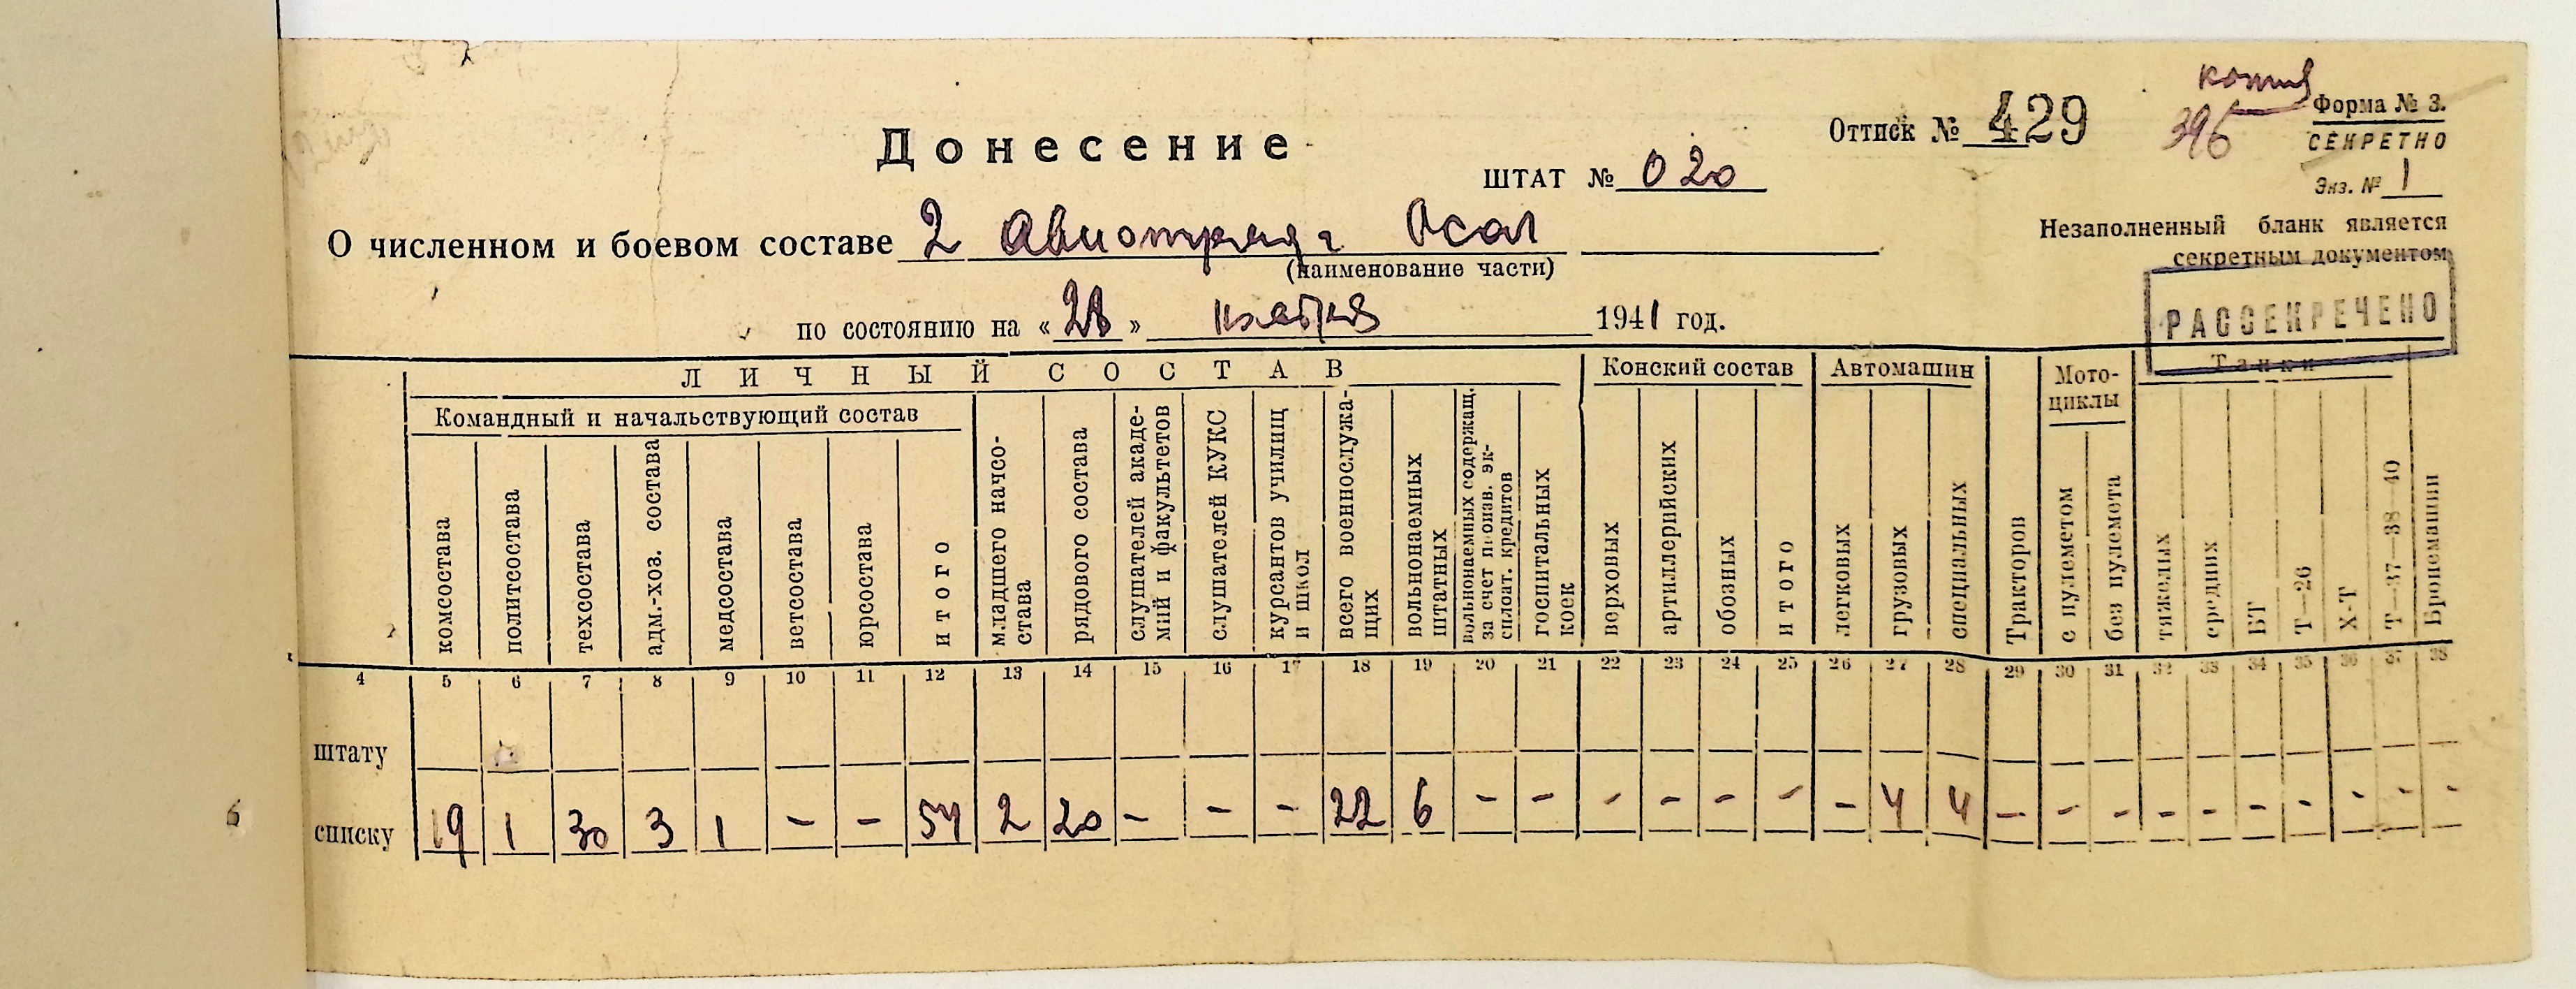 копия
396
Форма № 3.
СЕКРЕТНО
Экз. № 1
Оттиск № 429
Донесение
ШТАТ № 020
Незаполненный бланк является
секретным документом
РАССЕКРЕЧЕНО
О численном и боевом составе 2 Авиотряда Осал
(наименование части)
по состоянию на « 28 » ноября 1941 год.
ЛИЧНЫЙ СОСТАВ Конский состав Автомашин Мото-циклы Танки
Командный и начальствующий состав
комсостава
политсостава
техсостава
адм.-хоз. состава
медсостава
ветсостава
юрсостава
итого
младшего начсо-
става
рядового состава
слушателей акаде-
мий и факультетов
слушателей КУКС
курсантов училищ
и школ
всего военнослужа-
щих
вольнонаемных
штатных
вольнонаемных содержащ.
за счет произв. эк-
сплоат. кредитов
госпитальных
коек
верховых
артиллерийских
обозных
итого
легковых
грузовых
специальных
Тракторов
с пулеметом
без пулемета
тяжелых
средних
БТ
Т—26
Х-Т
Т—37—38—40
Бронемашин
4 5 6 7 8 9 10 11 12 13 14 15 16 17 18 19 20 21 22 23 24 25 26 27 28 29 30 31 32 33 34 35 36 37 38
штату
списку 19 1 30 3 1 - - 54 2 20 - - - 22 6 - - - - - - - 4 4 - - - - - - - - - -